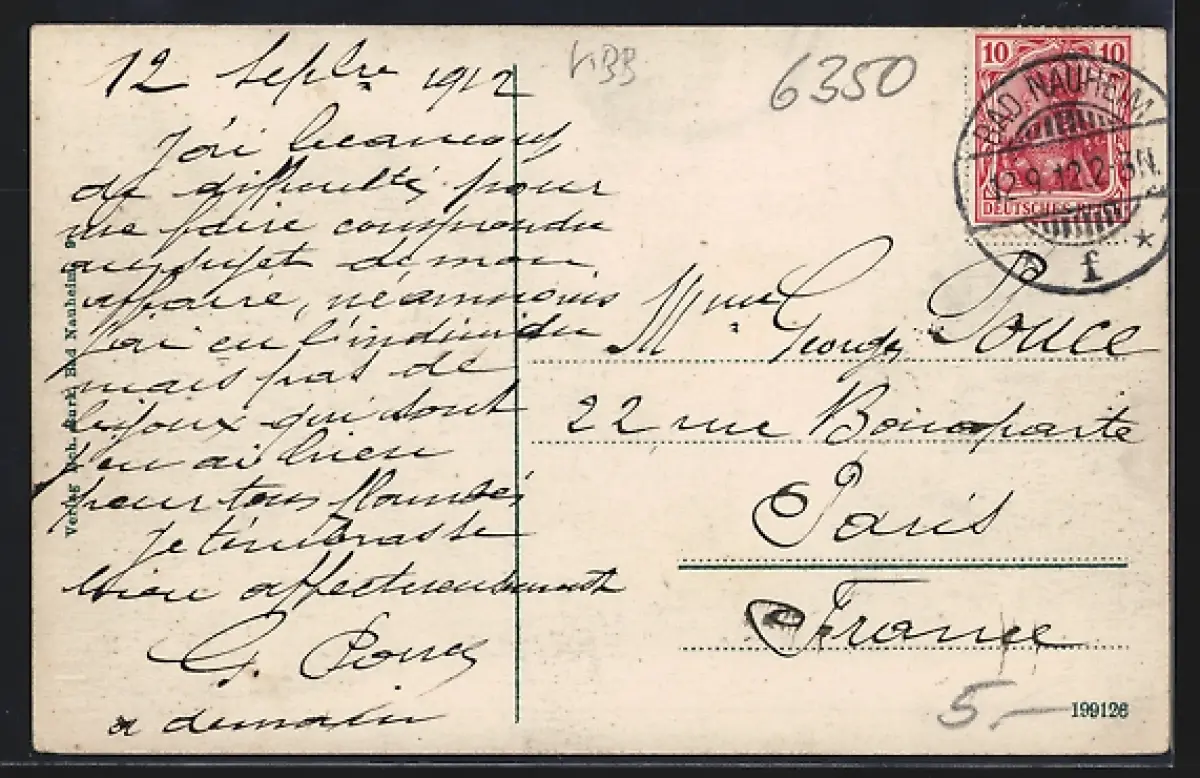 12 Septbre 1912
J'ai beaucoup
de difficultés pour
me faire comprendre
au sujet de mon
affaire, néanmoins
j'ai eu l'individu
mais pas de
bijoux qui sont
bien
pour tous
Je t'embrasse
bien affectueusement
G. Pouce
a demain
Verlag Bad Nauheim. 9
KBB
6350
10 10
DEUTSCHES REICH
BAD NAUHEIM
12.9.12.2-3N.
* f
Mme Georges Pouce
22 rue Bonaparte
Paris
France
5.-
199126